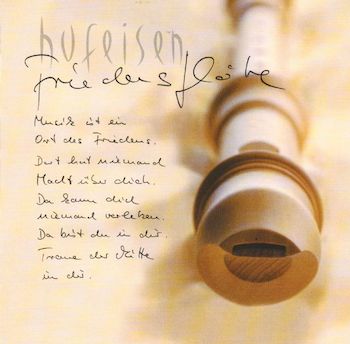 hufeisen
Friedensflöte
Musik ist ein
Ort des Friedens.
Dort hat niemand
Macht über dich.
Da kann dich
niemand verletzen.
Da bist du in dir.
Traue der Mitte
in dir.